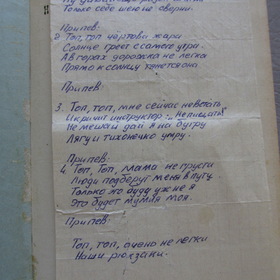 Только себе шею не сверни.
Припев:
2. Топ, топ чёртова жара
Солнце греет с самого утра.
А в горах дорожка не легка
Прямо к солнцу тянется она.
Припев:
3. Топ, топ, мне сейчас не встать
И кричит инструктор: "не пищать!"
Не мешай дай я на бугру
Лягу и тихонечко умру.
Припев:
4. Топ, топ, мама не грусти
Люди подберут меня в пути.
Только это буду уж не я
Это будет мумия моя.
Припев:
Топ, топ, очень не легки
Наши рюкзаки.